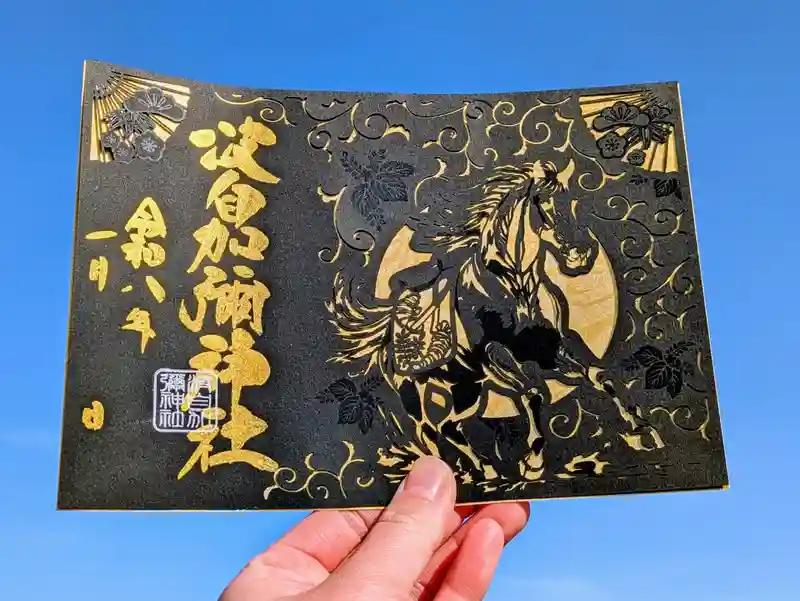 波自加彌神社
令和八年
一月
日
波自加
彌神社